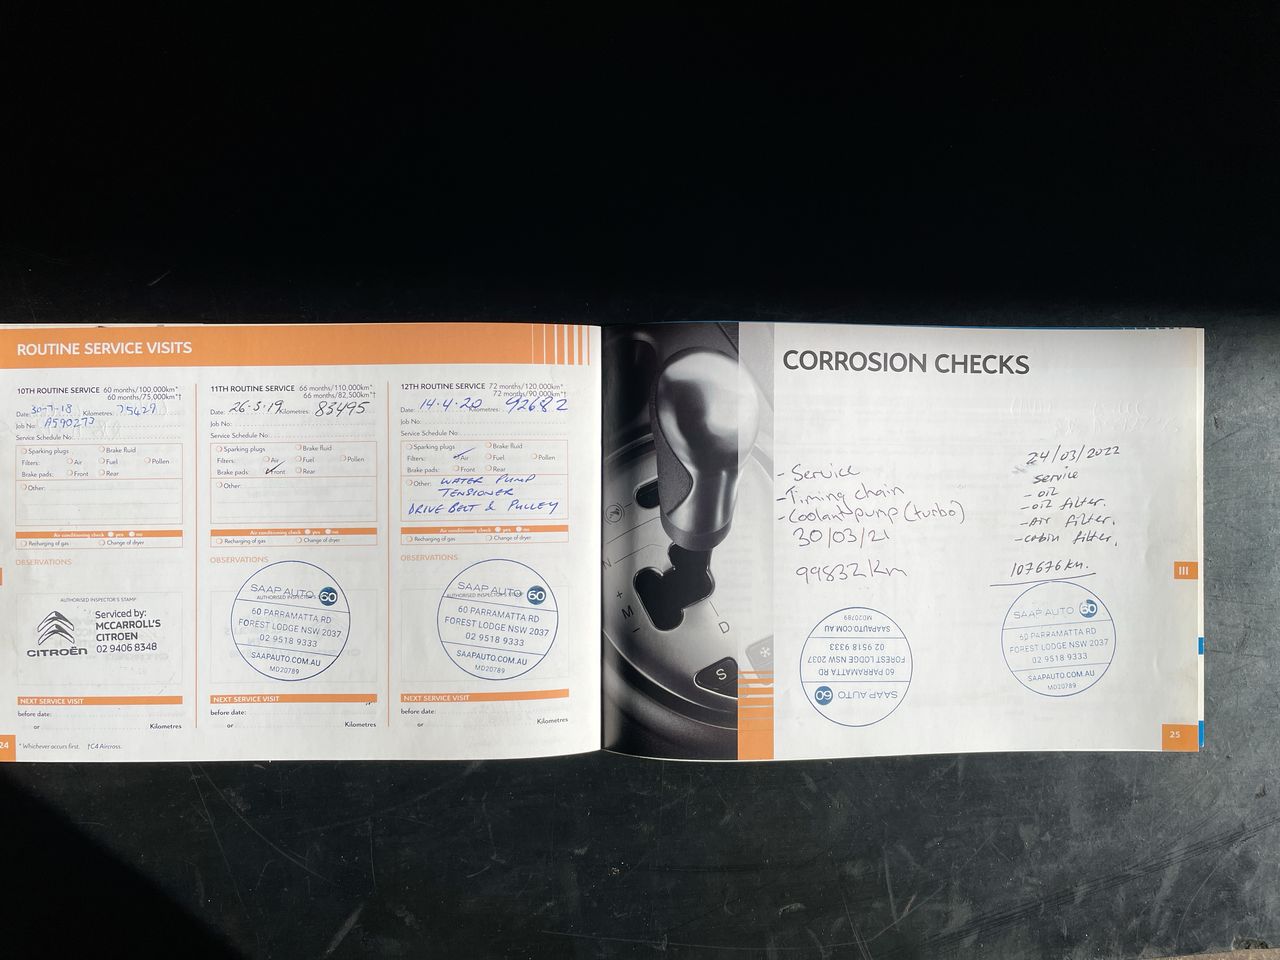 ROUTINE SERVICE VISITS
10TH ROUTINE SERVICE 60 months/100,000km*
60 months/75,000km*†
Date: 30-7-18 Kilometres: 75427
Job No: A590273
Service Schedule No:
Sparking plugs Brake fluid
Filters: Air Fuel Pollen
Brake pads: Front Rear
Other:
Air conditioning check yes no
Recharging of gas Change of dryer
OBSERVATIONS
AUTHORISED INSPECTOR'S STAMP
CITROËN
Serviced by:
MCCARROLL'S
CITROEN
02 9406 8348
NEXT SERVICE VISIT
before date:
or Kilometres
24
* Whichever occurs first. †C4 Aircross.
11TH ROUTINE SERVICE 66 months/110,000km*
66 months/82,500km*†
Date: 26-3-19 Kilometres: 83495
Job No:
Service Schedule No:
Sparking plugs Brake fluid
Filters: Air Fuel Pollen
Brake pads: Front Rear
Other:
Air conditioning check yes no
Recharging of gas Change of dryer
OBSERVATIONS
SAAP AUTO 60
AUTHORISED INSPECTOR'S
60 PARRAMATTA RD
FOREST LODGE NSW 2037
02 9518 9333
SAAPAUTO.COM.AU
MD20789
NEXT SERVICE VISIT
before date:
or Kilometres
12TH ROUTINE SERVICE 72 months/120,000km*
72 months/90,000km*†
Date: 14-4-20 Kilometres: 92682
Job No:
Service Schedule No:
Sparking plugs Brake fluid
Filters: Air Fuel Pollen
Brake pads: Front Rear
Other: WATER PUMP
TENSIONER
DRIVE BELT & PULLEY
Air conditioning check yes no
Recharging of gas Change of dryer
OBSERVATIONS
SAAP AUTO 60
AUTHORISED INSPECTOR'S
60 PARRAMATTA RD
FOREST LODGE NSW 2037
02 9518 9333
SAAPAUTO.COM.AU
MD20789
NEXT SERVICE VISIT
before date:
or Kilometres
N
+
M
-
D
S
*
CORROSION CHECKS
- Service
- Timing chain
- Coolant pump (turbo)
30/03/21
99832 km
SAAP AUTO 60
60 PARRAMATTA RD
FOREST LODGE NSW 2037
02 9518 9333
SAAPAUTO.COM.AU
MD20789
24/03/2022
service
- oil
- oil filter.
- Air filter.
- cabin filter.
107676 km.
SAAP AUTO 60
60 PARRAMATTA RD
FOREST LODGE NSW 2037
02 9518 9333
SAAPAUTO.COM.AU
MD20789
III
25